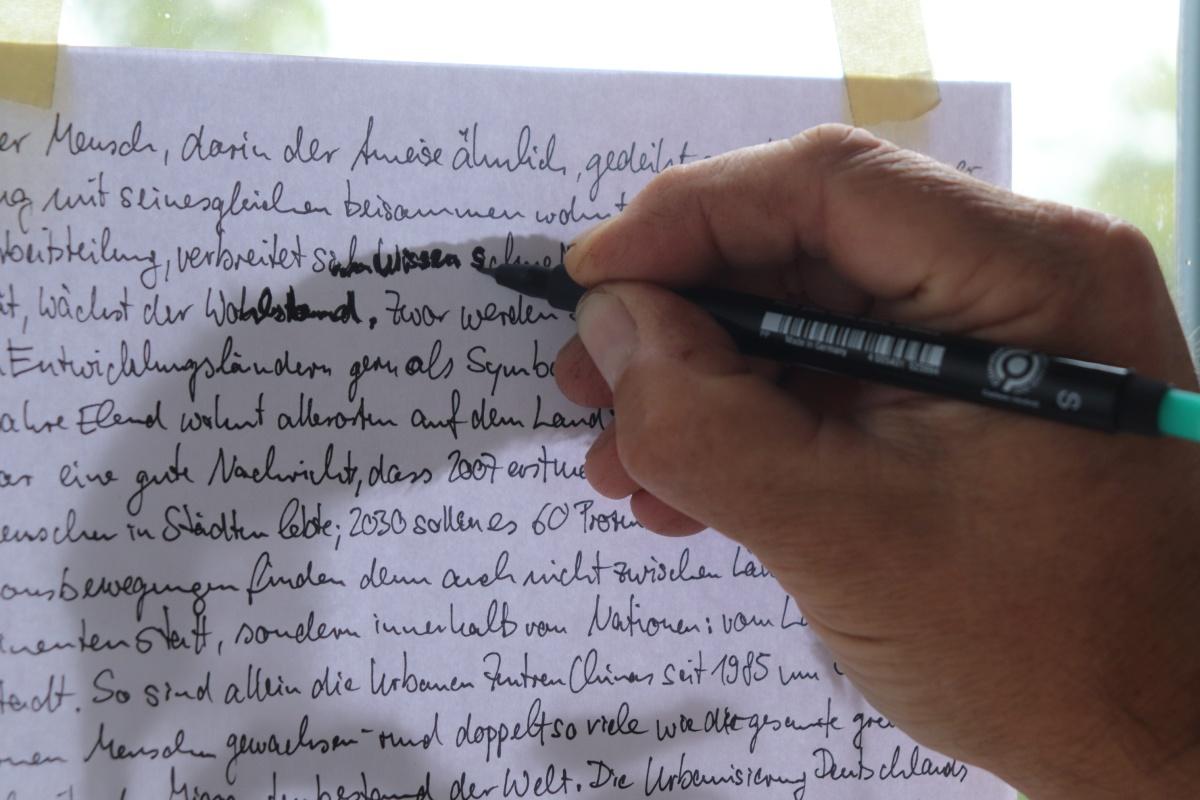 er Mensch, darin der Ameise ähnlich, gedeiht er
ng mit seinesgleichen beisammen wohnt
rbeitsteilung, verbreitet sich Wissen schne
ät, wächst der Wohlstand. Zwar werden
Entwicklungsländern gern als Symbo
ahre Elend wohnt allerorten auf dem Land
ar eine gute Nachricht, dass 2007 erstm
enschen in Städten lebte; 2030 sollen es 60 Prozen
onsbewegungen finden denn auch nicht zwischen Län
inenten statt, sondern innerhalb von Nationen: vom L
tadt. So sind allein die Urbanen Zentren Chinas seit 1985 um
onen Menschen gewachsen – und doppelt so viele wie die gesamte
bestand der Welt. Die Urbanisierung Deutschlands
Made in Germany
S